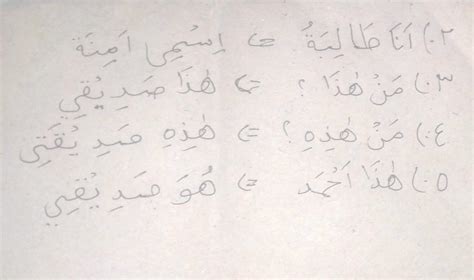 ٢.) اَنَا طَالِبَةُ => اِسْمِي اٰمِنَة
٣.) مَنْ هٰذَا ؟ => هٰذَا صَدِيْقِي
٤.) مَنْ هٰذِهِ ؟ => هٰذِهِ صَدِيْقَتِي
٥.) هٰذَا اَحْمَد => هُوَ صَدِيْقِي